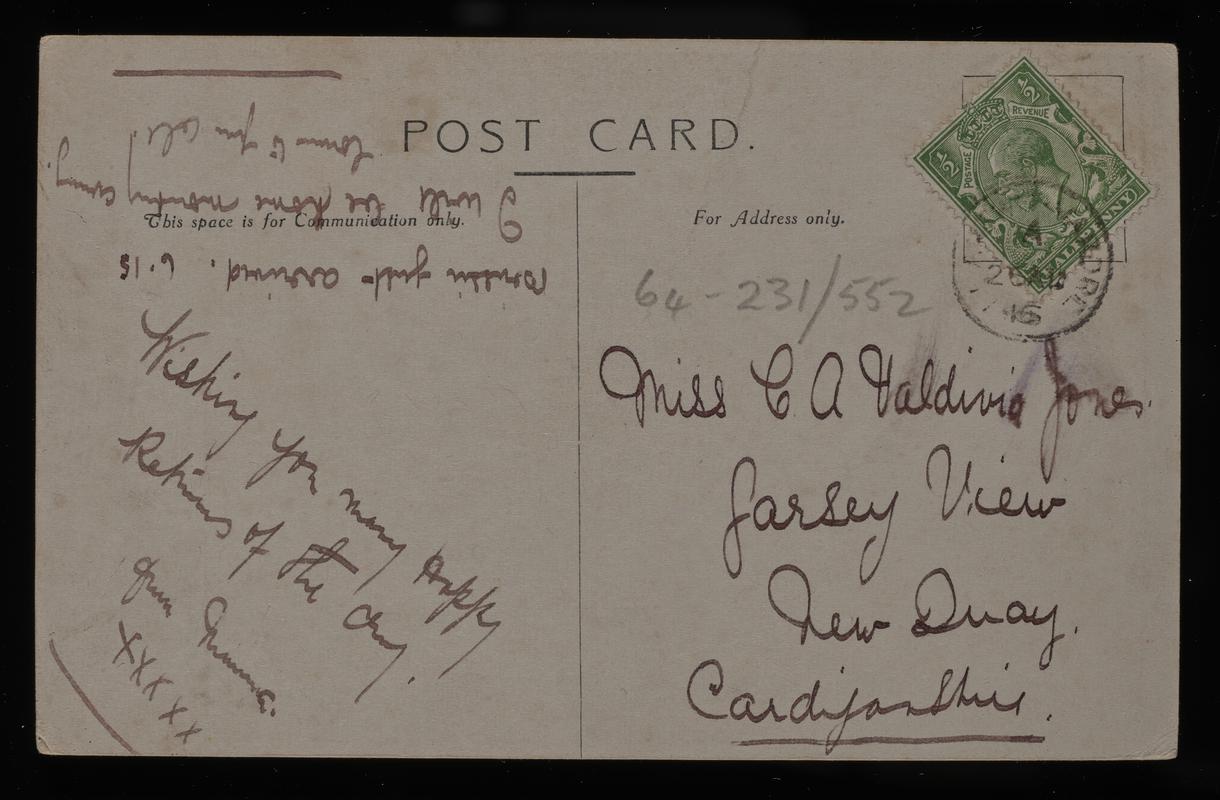 POST CARD.
This space is for Communication only.
For Address only.
½
REVENUE
½
POSTAGE
HALFPENNY
A
16
64-231/552
Miss C A Valdivia Jones.
Jarsey View
New Quay.
Cardiganshire.
Wishing you many Happy
Returns of the day.
from Mamma.
XXXXX
just arrived. 6.15
I will be home monday evening.
love to you all!